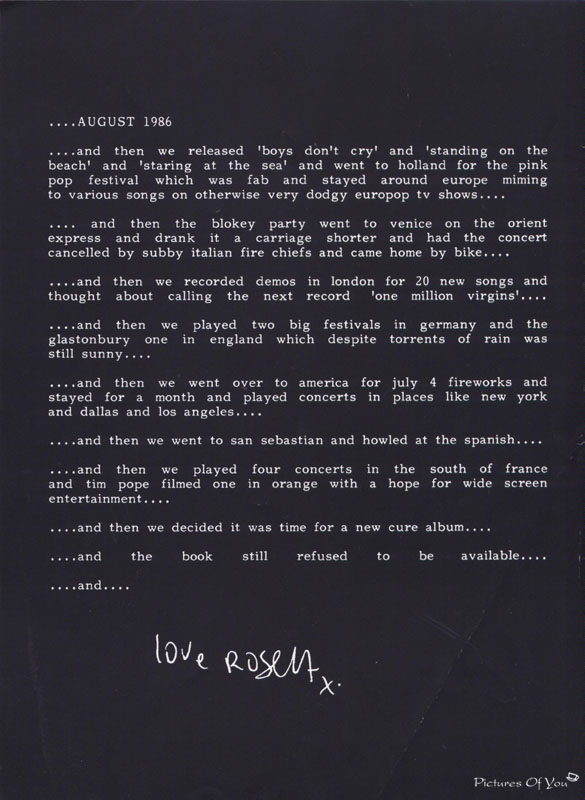 ....AUGUST 1986
....and then we released 'boys don't cry' and 'standing on the
beach' and 'staring at the sea' and went to holland for the pink
pop festival which was fab and stayed around europe miming
to various songs on otherwise very dodgy europop tv shows....
.... and then the blokey party went to venice on the orient
express and drank it a carriage shorter and had the concert
cancelled by subby italian fire chiefs and came home by bike....
....and then we recorded demos in london for 20 new songs and
thought about calling the next record 'one million virgins'....
....and then we played two big festivals in germany and the
glastonbury one in england which despite torrents of rain was
still sunny....
....and then we went over to america for july 4 fireworks and
stayed for a month and played concerts in places like new york
and dallas and los angeles....
....and then we went to san sebastian and howled at the spanish....
....and then we played four concerts in the south of france
and tim pope filmed one in orange with a hope for wide screen
entertainment....
....and then we decided it was time for a new cure album....
....and the book still refused to be available....
....and....
love Robert x.
Pictures Of You